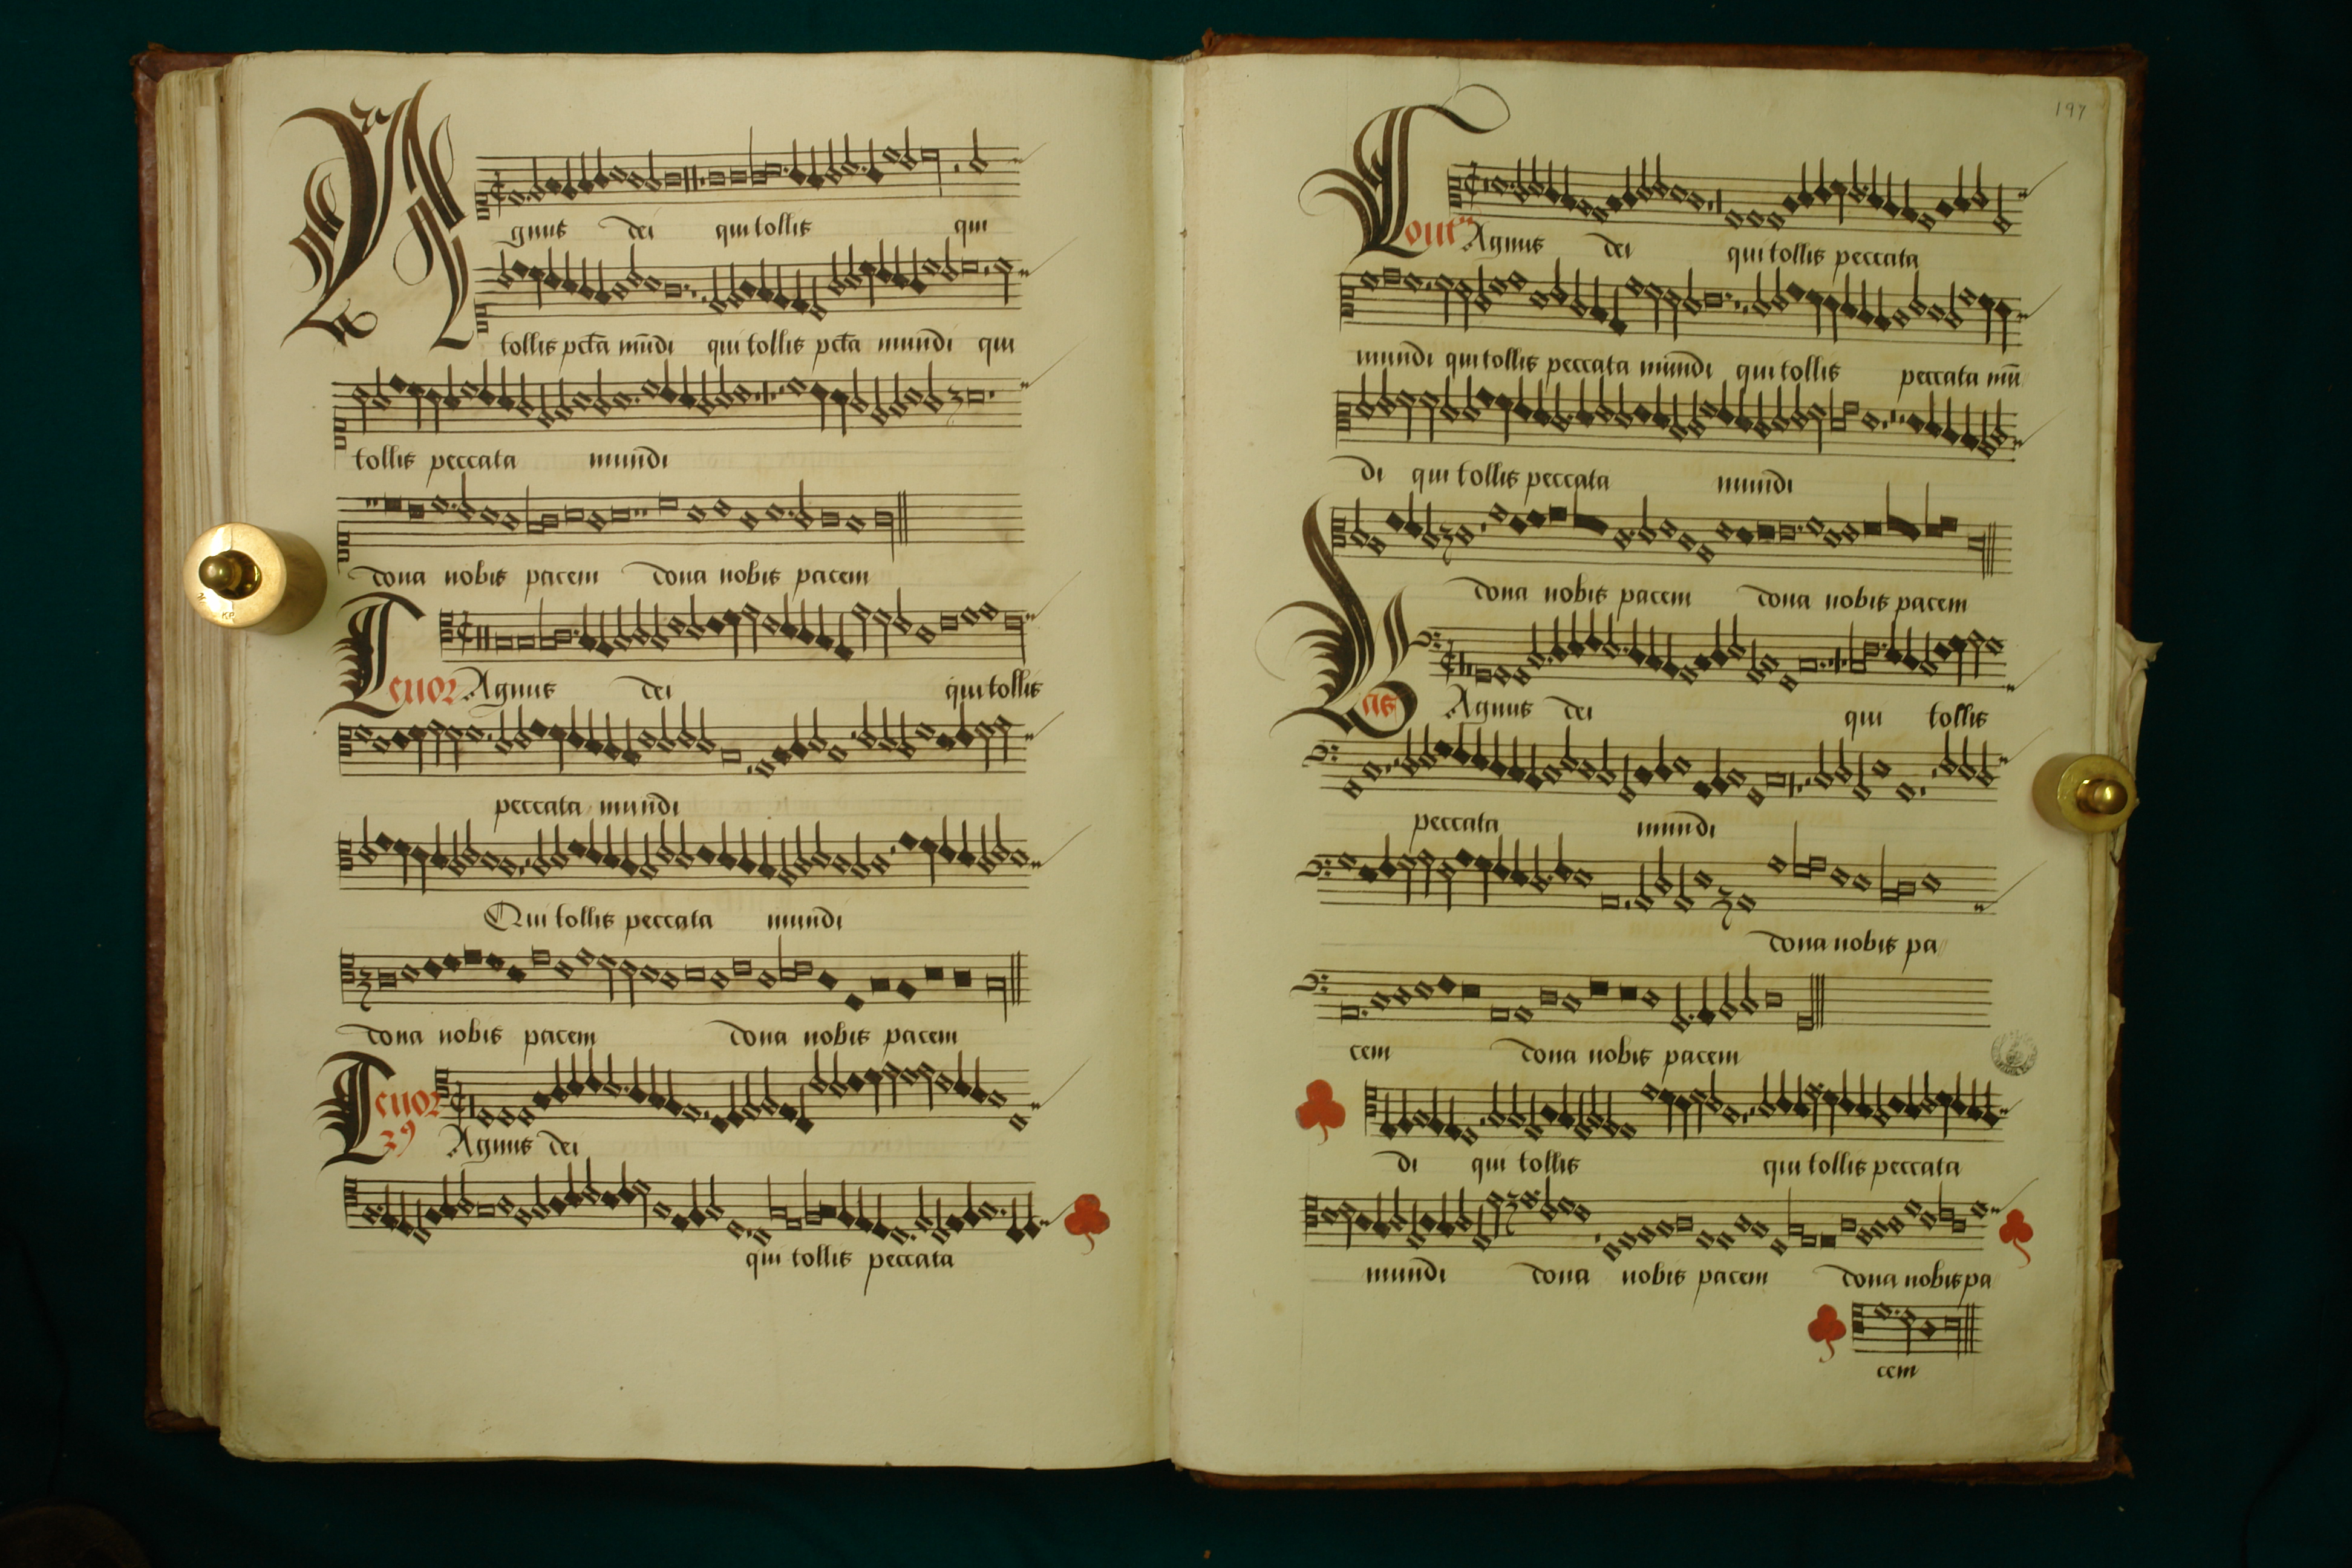 Agnus dei qui tollis qui
tollis pctā mūdi qui tollis pctā mundi qui
tollis peccata mundi
dona nobis pacem dona nobis pacem
Tenor Agnus dei qui tollis
peccata mundi
Qui tollis peccata mundi
dona nobis pacem dona nobis pacem
Tenor
2⁹ Agnus dei
qui tollis peccata
197
Agnus dei qui tollis peccata
mundi qui tollis peccata mundi qui tollis peccata mū
di qui tollis peccata mundi
dona nobis pacem dona nobis pacem
Bas Agnus dei qui tollis
peccata mundi
dona nobis pa
cem dona nobis pacem
di qui tollis qui tollis peccata
mundi dona nobis pacem dona nobis pa
cem